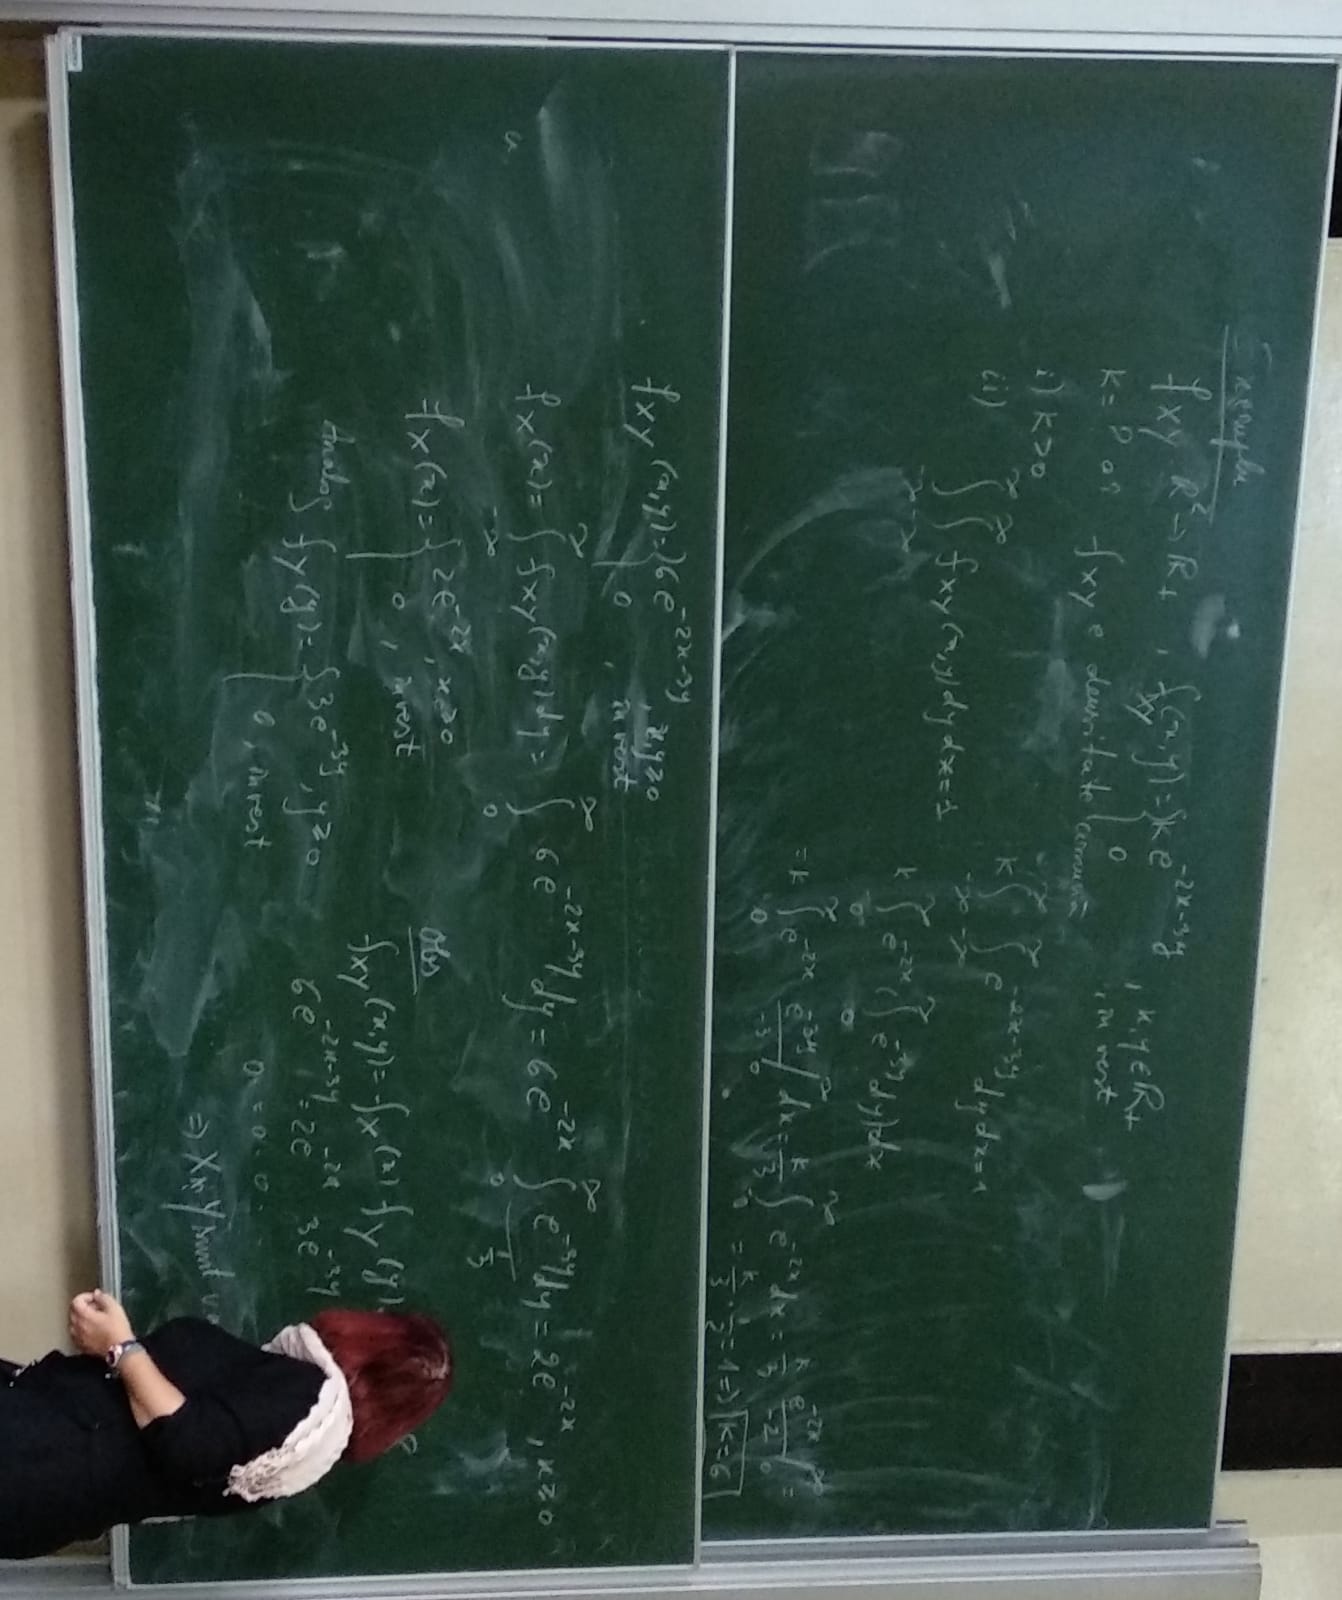 Exemplu
f_{XY} ℝ² → ℝ₊ , f_{XY}(x,y) = { k e^{-2x-3y} , x,y ∈ ℝ₊
0 , în rest
k = ? aî f_{XY} e densitate comună
i) k > 0
ii) ∫_{-∞}^{∞} ∫_{-∞}^{∞} f_{XY}(x,y) dy dx = 1
k ∫_{-∞}^{∞} ∫_{-∞}^{∞} e^{-2x-3y} dy dx = 1
k ∫_0^∞ e^{-2x} (∫_0^∞ e^{-3y} dy) dx
= k ∫_0^∞ e^{-2x} e^{-3y}/-3 |_0^∞ dx = k/3 ∫_0^∞ e^{-2x} dx = k/3 e^{-2x}/-2 |_0^∞ =
= k/3 · 1/2 = 1 => k = 6
f_{XY}(x,y) = { 6 e^{-2x-3y} , x,y ≥ 0
0 , în rest
f_X(x) = ∫_{-∞}^{∞} f_{XY}(x,y) dy = ∫_0^∞ 6 e^{-2x-3y} dy = 6 e^{-2x} ∫_0^∞ e^{-3y} dy = 2 e^{-2x} , x ≥ 0
1/3
f_X(x) = { 2 e^{-2x} , x ≥ 0
0 , în rest
Analog f_Y(y) = { 3 e^{-3y} , y ≥ 0
0 , în rest
Obs
f_{XY}(x,y) = f_X(x) f_Y(y)
6 e^{-2x-3y} = 2 e^{-2x} 3 e^{-3y}
0 = 0 · 0
=> X și Y sunt v.a